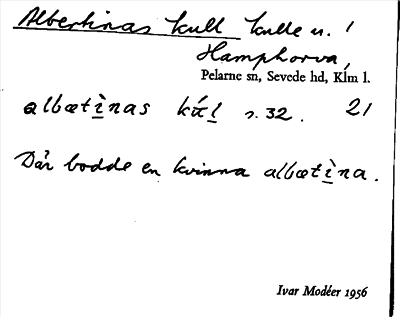 Albertinas kull kulle n. 1
Hamphorva,
Pelarne sn, Sevede hd, Klm l.
albæti̲nas kɷ́l̲ s. 32. 21
Där bodde en kvinna albæti̲na.
Ivar Modéer 1956